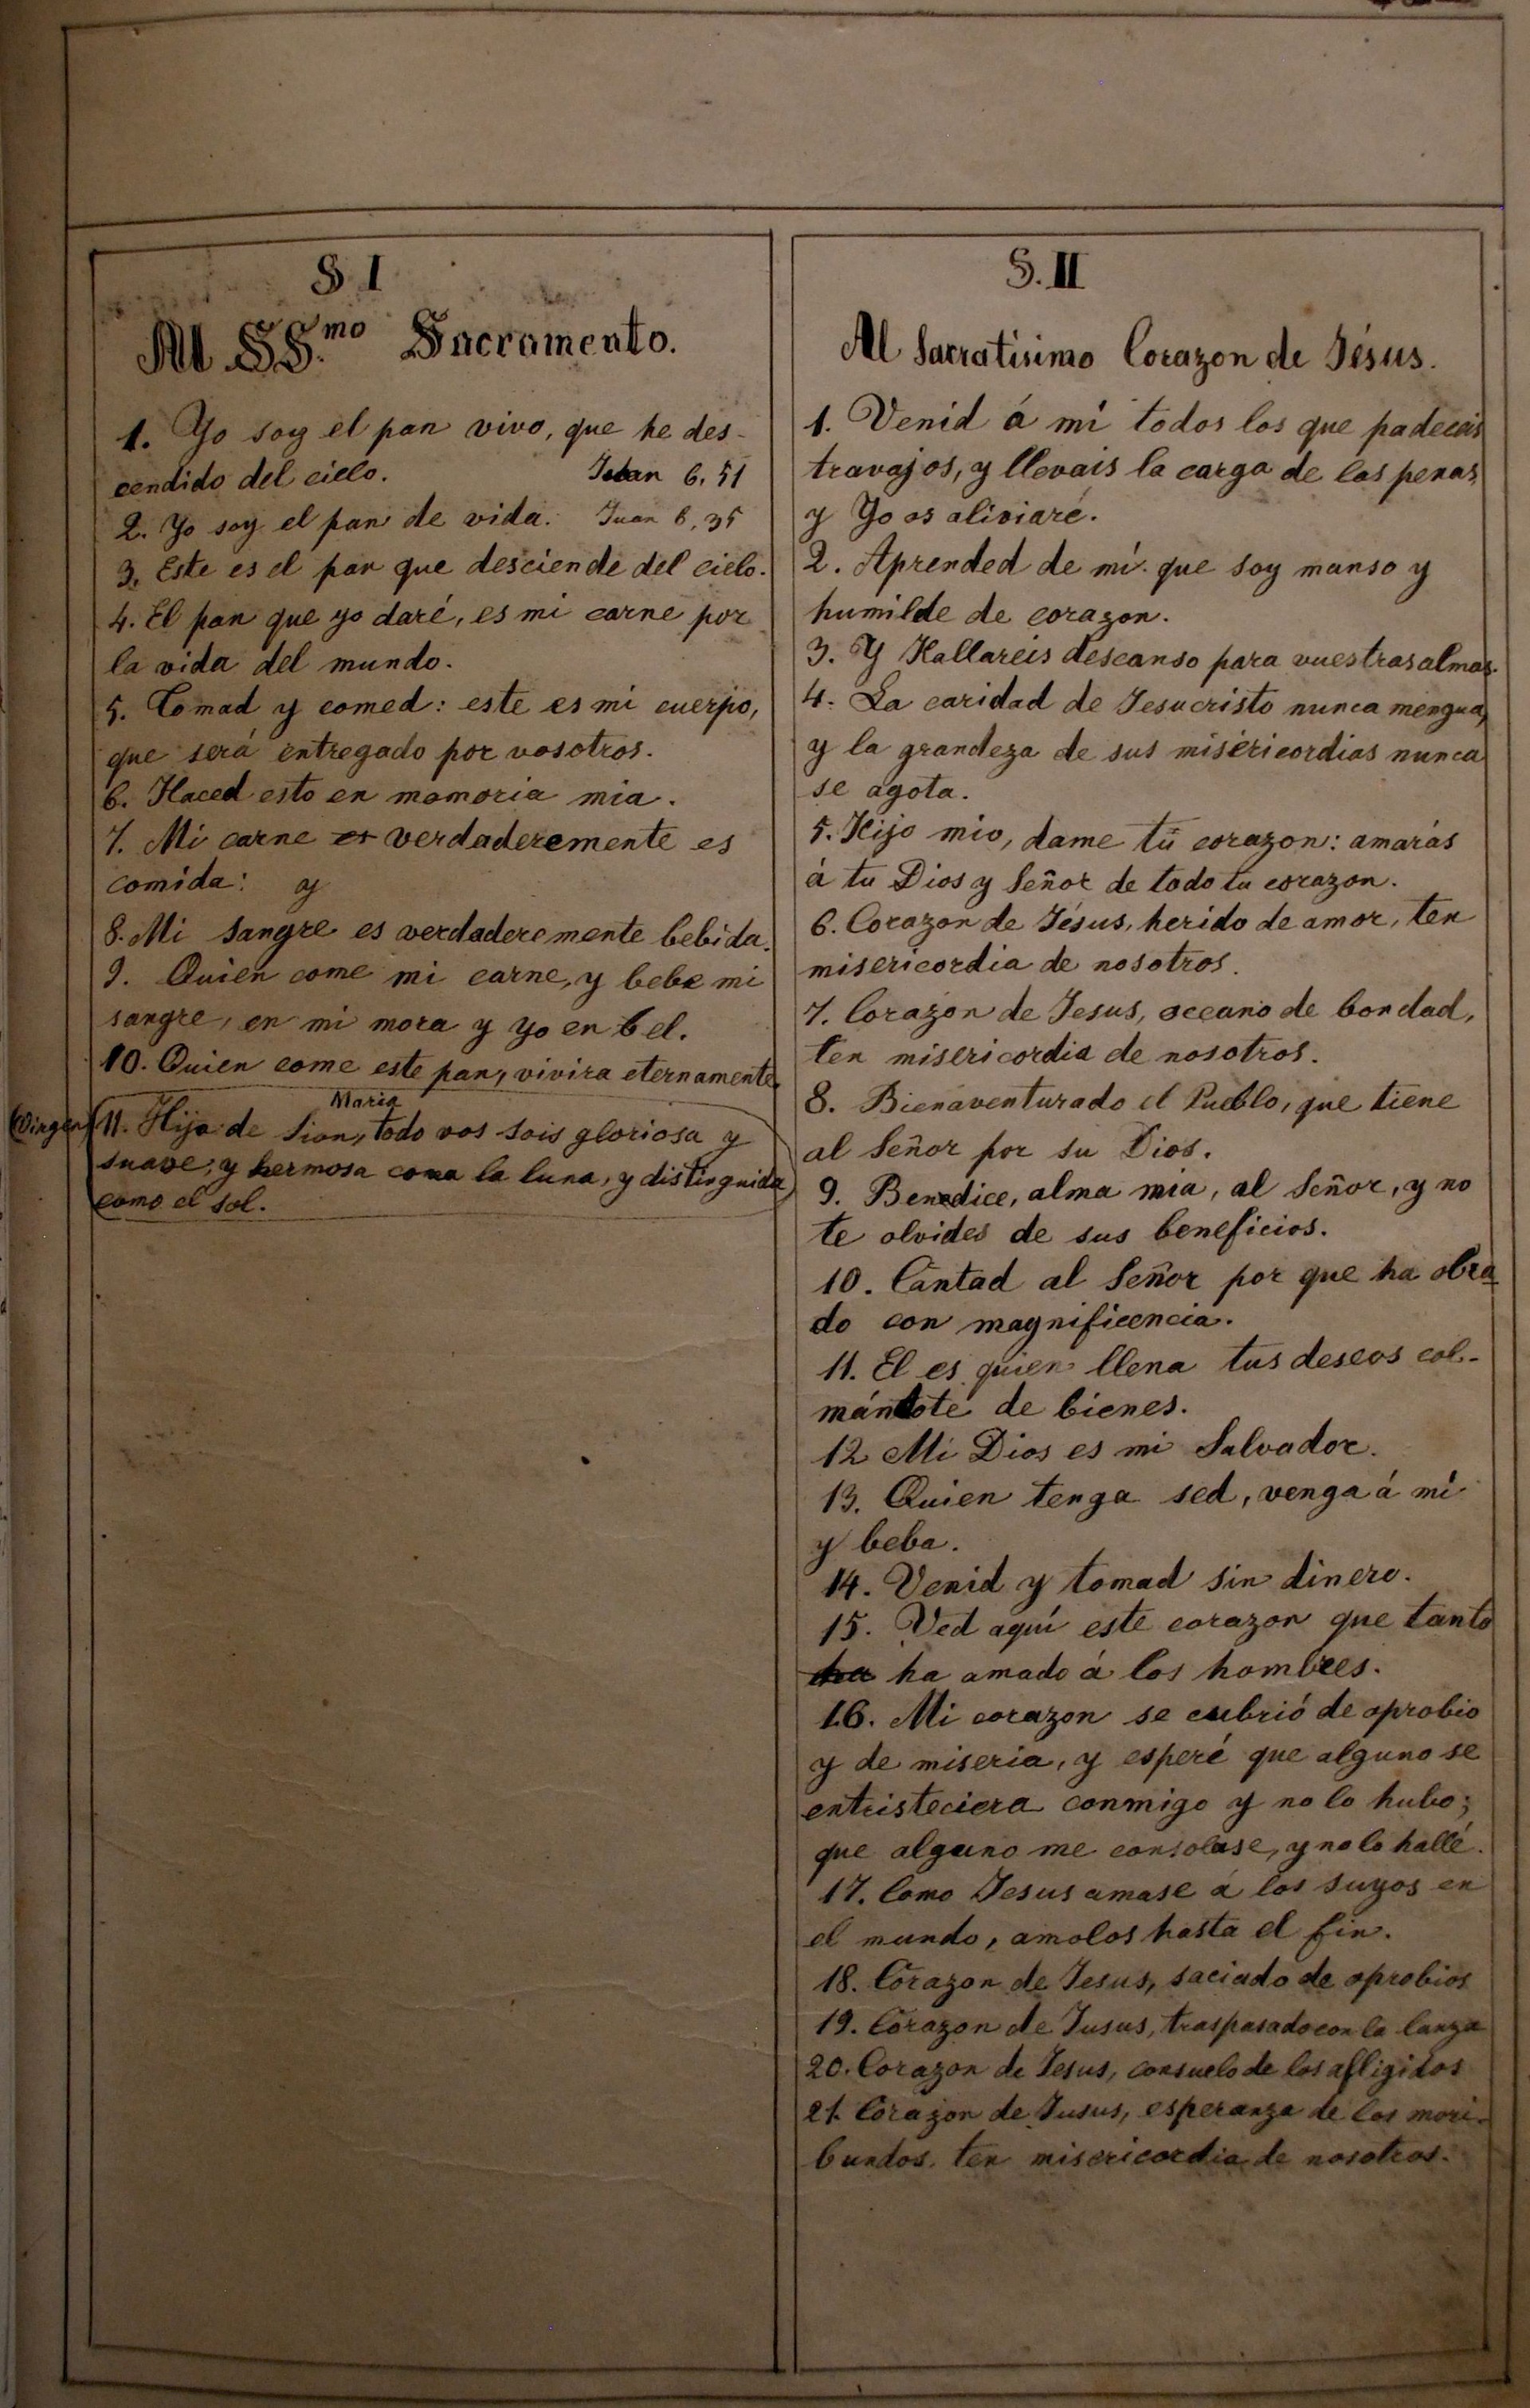 § I
Al SS.mo Sacramento.
1. Yo soy el pan vivo, que he des-
cendido del cielo. Juan 6, 51
2. Yo soy el pan de vida. Juan 6, 35
3. Este es el pan que desciende del cielo.
4. El pan que yo daré, es mi carne por
la vida del mundo.
5. Tomad y comed: este es mi cuerpo,
que será entregado por vosotros.
6. Haced esto en mamoria mia.
7. Mi carne es verdaderemente es
comida: y
8. Mi sangre es verdaderemente bebida.
9. Quien come mi carne, y bebe mi
sangre, en mi mora y Yo en el.
10. Quien come este pan, vivira eternamente.
Maria
(Virgen) 11. Hija de Sion, todo vos sois gloriosa y
suave, y hermosa como la luna, y distinguida
como el sol.
S. II
Al Sacratisimo Corazon de Jésus.
1. Venid á mi todos los que padeceis
travajos, y llevais la carga de las penas,
y Yo os aliviaré.
2. Aprended de mi que soy manso y
humilde de corazon.
3. Y Hallareis descanso para vuestras almas.
4. La caridad de Jesucristo nunca mengua,
y la grandeza de sus miséricordias nunca
se agota.
5. Hijo mio, dame tú corazon: amarás
á tu Dios y Señor de todo tu corazon.
6. Corazon de Jésus, herido de amor, ten
misericordia de nosotros.
7. Corazon de Jesus, occeano de bondad,
ten misericordia de nosotros.
8. Bienaventurado el Pueblo, que tiene
al Señor por su Dios.
9. Benedice, alma mia, al Señor, y no
te olvides de sus beneficios.
10. Cantad al Señor por que ha obra-
do con magnificencia.
11. El es quien llena tus deseos col-
mándote de bienes.
12 Mi Dios es mi Salvador.
13. Quien tenga sed, venga á mi
y beba.
14. Venid y tomad sin dinero.
15. Ved aquí este corazon que tanto
ha ha amado á los hombres.
16. Mi corazon se cubrió de oprobio
y de miseria, y esperé que alguno se
entristeciera conmigo y no lo hubo;
que alguno me consolase, y no lo hallé.
17. Como Jesus amase á los suyos en
el mundo, amolos hasta el fin.
18. Corazon de Jesus, saciado de oprobios
19. Corazon de Jusus, traspasado con la lanza
20. Corazon de Jesus, consuelo de los afligidos
21. Corazon de Jusus, esperanza de los mori-
bundos, ten misericordia de nosotros.